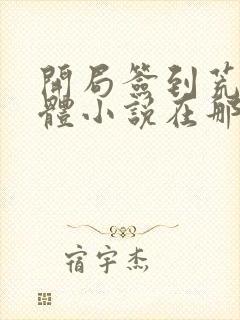 開局簽到荒
體小說在那
宿宇杰